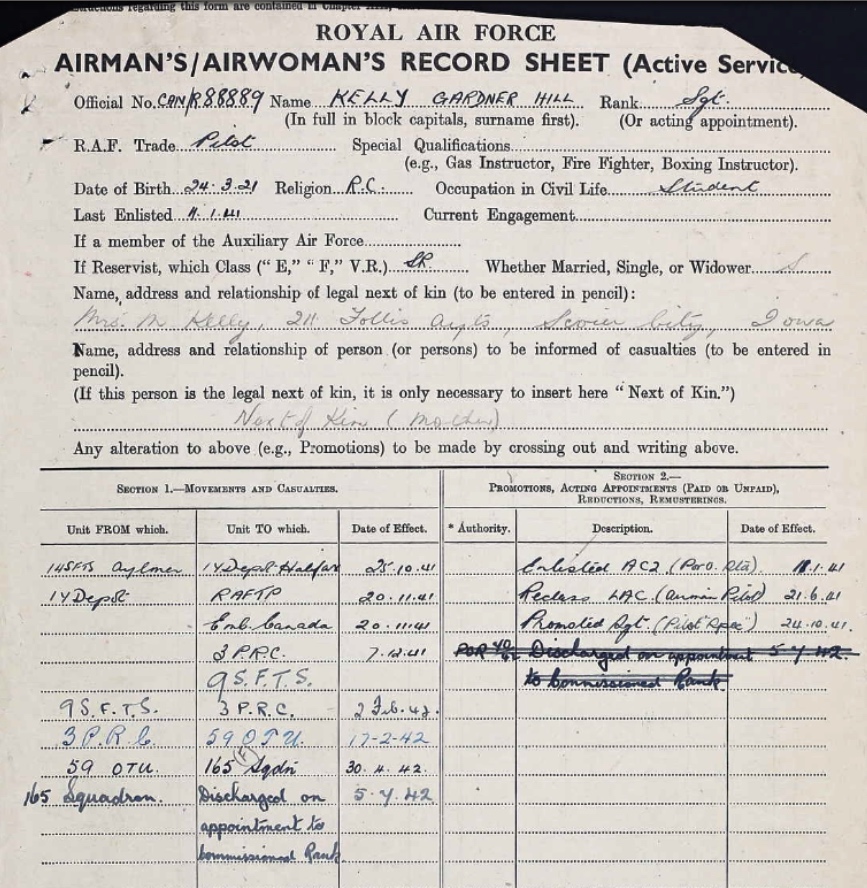 ROYAL AIR FORCE
AIRMAN'S/AIRWOMAN'S RECORD SHEET (Active Service)
Official No. CAN/R88889 Name KELLY GARDNER HILL Rank Sgt.
(In full in block capitals, surname first). (Or acting appointment).
R.A.F. Trade Pilot Special Qualifications
(e.g., Gas Instructor, Fire Fighter, Boxing Instructor).
Date of Birth 24.3.21 Religion R.C. Occupation in Civil Life Student
Last Enlisted 1.41 Current Engagement
If a member of the Auxiliary Air Force
If Reservist, which Class (" E," " F," V.R.) SR. Whether Married, Single, or Widower S
Name, address and relationship of legal next of kin (to be entered in pencil):
Mrs. M Kelly, 211 Follis Apts, City, Iowa
Name, address and relationship of person (or persons) to be informed of casualties (to be entered in
pencil).
(If this person is the legal next of kin, it is only necessary to insert here " Next of Kin.")
Next of Kin (Mother)
Any alteration to above (e.g., Promotions) to be made by crossing out and writing above.
SECTION 1.—MOVEMENTS AND CASUALTIES.
SECTION 2.—
PROMOTIONS, ACTING APPOINTMENTS (PAID OR UNPAID),
REDUCTIONS, REMUSTERINGS.
Unit FROM which. Unit TO which. Date of Effect. * Authority. Description. Date of Effect.
14SFTS Aylmer 1Y Depot Halifax 25.10.41 Enlisted AC2 1.41
1Y Depot RAFTP 20.11.41 Reclass LAC. (Airmn Pilot) 21.6.41
Emb. Canada 20.11.41 Promoted Sgt. (Pilot Spec) 24.10.41.
3 P.R.C. 7.12.41 POR Discharged on appointment 5-7-42.
9 S.F.T.S. to Commissioned Rank.
9 S.F.T.S. 3 P.R.C. 2 Feb. 42.
3 P.R.C. 59 OTU. 17-2-42
59 OTU. 165 (F) Sqdn 30.4.42.
165 Squadron. Discharged on 5-7-42
appointment to
Commissioned Rank